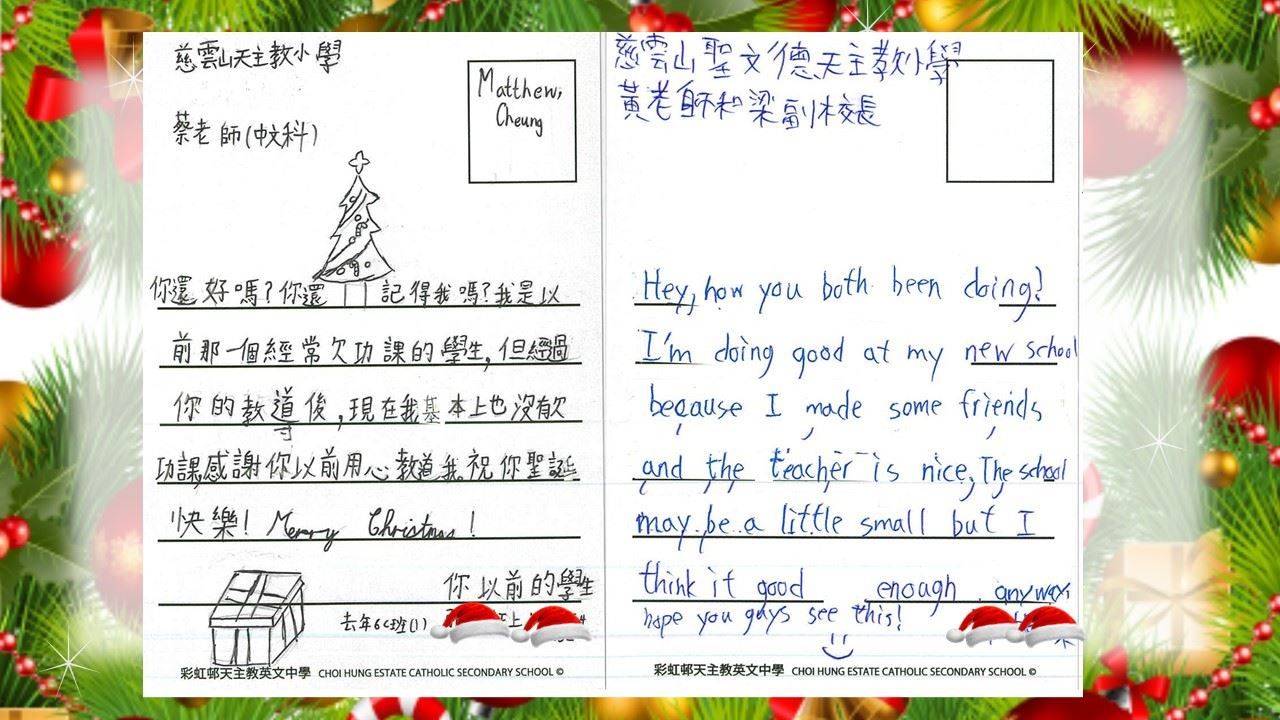 慈雲山天主教小學
蔡老師(中文科)
Matthew,
Cheung
你還好嗎?你還記得我嗎?我是以
前那一個經常欠功課的學生,但經過
你的教導後,現在我基本上也沒有欠
功課,感謝你以前用心教導我。祝你聖誕
快樂! Merry Christmas!
你以前的學生
去年6C班(1)
上
彩虹邨天主教英文中學 CHOI HUNG ESTATE CATHOLIC SECONDARY SCHOOL ©
慈雲山聖文德天主教小學
黃老師和梁副校長
Hey, how you both been doing?
I'm doing good at my new school
because I made some friends
and the teacher is nice, The school
may be a little small but I
think it good enough, anyways
hope you guys see this!
彩虹邨天主教英文中學 CHOI HUNG ESTATE CATHOLIC SECONDARY SCHOOL ©